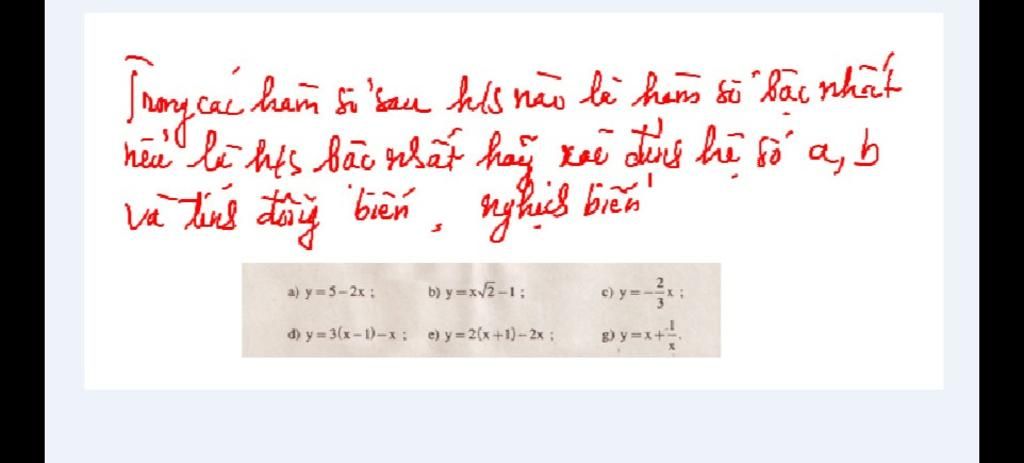 Trong các hàm số sau h/s nào là hàm số bậc nhất
nếu là h/s bậc nhất hãy xác định hệ số a, b
và tính đồng biến, nghịch biến
a) y = 5 – 2x ; b) y = x√2 – 1 ; c) y = –2/3 x ;
d) y = 3(x – 1) – x ; e) y = 2(x + 1) – 2x ; g) y = x + 1/x.